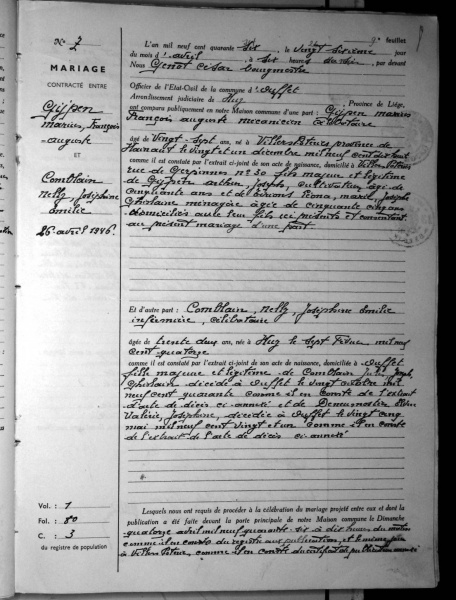 9e feuillet
N° 7
MARIAGE
CONTRACTÉ ENTRE
Gijpen
marius, François
auguste
ET
Comblain
Nelly, Joséphine
Emilie
26 avril 1946.
L'an mil neuf cent quarante six, le vingt sixième jour
du mois d'avril, à six heures du soir, par devant
Nous Genot César bourgmestre
Officier de l'Etat-Civil de la commune d'Ouffet
Arrondissement judiciaire de Huy, Province de Liége,
ont comparu publiquement en notre Maison commune d'une part : Gijpen marius
François auguste mécanicien célibataire
âgé de vingt-sept ans, né à Villers Potterie province de
Hainaut le vingt et un décembre mil neuf cent dix huit
comme il est constaté par l'extrait ci-joint de son acte de naissance, domicilié à Villers Potterie
rue de n° 30 fils majeur et légitime
de Gijpen arthur, Joseph, cultivateur âgé de
cinquante ans et de Rona, marie, Joseph
Ghislaine ménagère âgée de cinquante cinq ans
domiciliés au le fils ici présents et consentant
au présent mariage d'une part
Et d'autre part : Comblain, Nelly, Joséphine Emilie
infirmière, célibataire
âgée de trente deux ans, née à Huy le sept février mil neuf
cent quatorze
comme il est constaté par l'extrait ci-joint de son acte de naissance, domiciliée à Ouffet
fille majeure et légitime de Comblain Jules Joseph
Ghislain décédé à Ouffet le vingt octobre mil
neuf cent quarante comme il en conste de l'extrait
d'acte de décès ci-annexé et de
Valérie, Joséphine, décédée à Ouffet le vingt cinq
mai mil neuf cent vingt et un comme il en conste
de l'extrait de l'acte de décès ci-annexé
Vol. : 1
Fol. : 80
C. : 3
du registre de population
Lesquels nous ont requis de procéder à la célébration du mariage projeté entre eux et dont la
publication a été faite devant la porte principale de notre Maison commune le Dimanche
quatorze avril mil neuf quarante six à dix heures du matin
comme il en conste du registre aux publications, et le même jour
à Villers Potterie, comme il en conste du certificat de publication